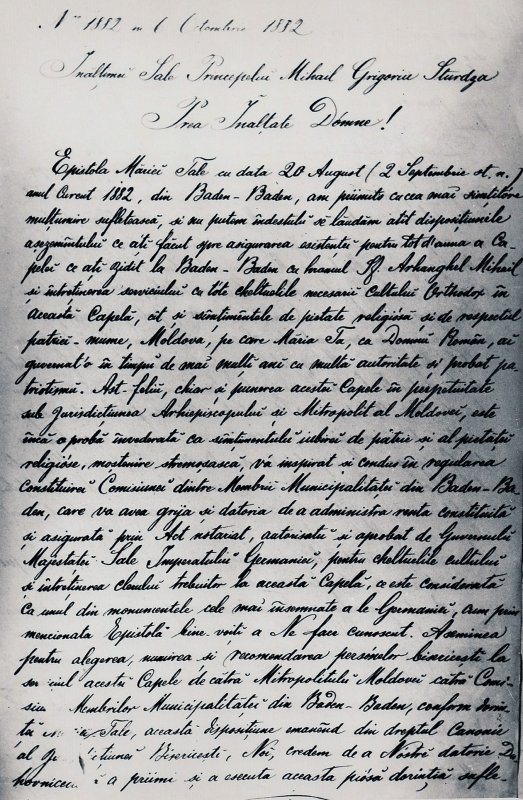 No 1882 6 Octombrie 1882
Inălţimei Sale Principelui Mihail Grigoriu Sturdza
Prea Inălţate Dómne!
Epistola Măriei Tale cu data 20 August (2 Septembrie st. n.)
anul curent 1882, din Baden-Baden, am priimit'o cu cea mai simtitóre
mulţumire sufletéscă, şi nu putem îndestulŭ să lăudăm atât dispoziţiunile
aşezemîntului ce aţi făcut spre asigurarea esistenţei pentru tot d'auna a Ca-
pelei ce aţi zidit la Baden-Baden cu hramul Sf. Arhanghel Mihail
şi întreţinerea serviciului cu tóte cheltuelile necesarii Cultului Ortodox în
Această Capelă, cît şi sîmţimintele de pietate religiósă şi de respectul
patriei-mume, Moldova, pe care Măria Ta, ca Domnŭ Român, ai
guvernat'o în timpŭ de mai mulţi ani cu multă autoritate şi probat pa-
triotismŭ. Ast-feliŭ, chiar şi punerea acestei Capele în perpetuitate
sub Jurisdicţiunea Arhiepiscopului şi Mitropolit al Moldovei, este
încă o probă învederată că sîmţimentului iubirei de patrie şi al pietăţei
religióse, moştenire stremoşască, v'a inspirat şi condus în regularea
constituirei Comisiunei dintre Membrii Municipalităţei din Baden-Ba-
den, care va avea grija şi datoria de a administra renta constituită
şi asigurată prin Act notarial, autorisatŭ şi aprobat de Guvernul
Majestăţei Sale Imperatului Germaniei, pentru cheltuelile cultului
şi întreţinerea clerului trebuitor la această Capelă, ce este considerată
Ca unul din monumentele cele mai însemnate a le Germaniei, cum prin
menţionata Epistolă bine-voiţi a Ne face cunoscut. Asemenea
pentru alegerea, numirea şi recomendarea persónelor bisericeşti la
acestei Capele de cătră Mitropolitului Moldovei cătră Comi-
Membrilor Municipalităţei din Baden-Baden, conform
Tale, această dispoziţiune emanând din dreptul Canonic
al Bisericeşti, Noi, credem de a Nóstră datorie
a priimi şi a executa aceasta piósă dorinţiă sufle-